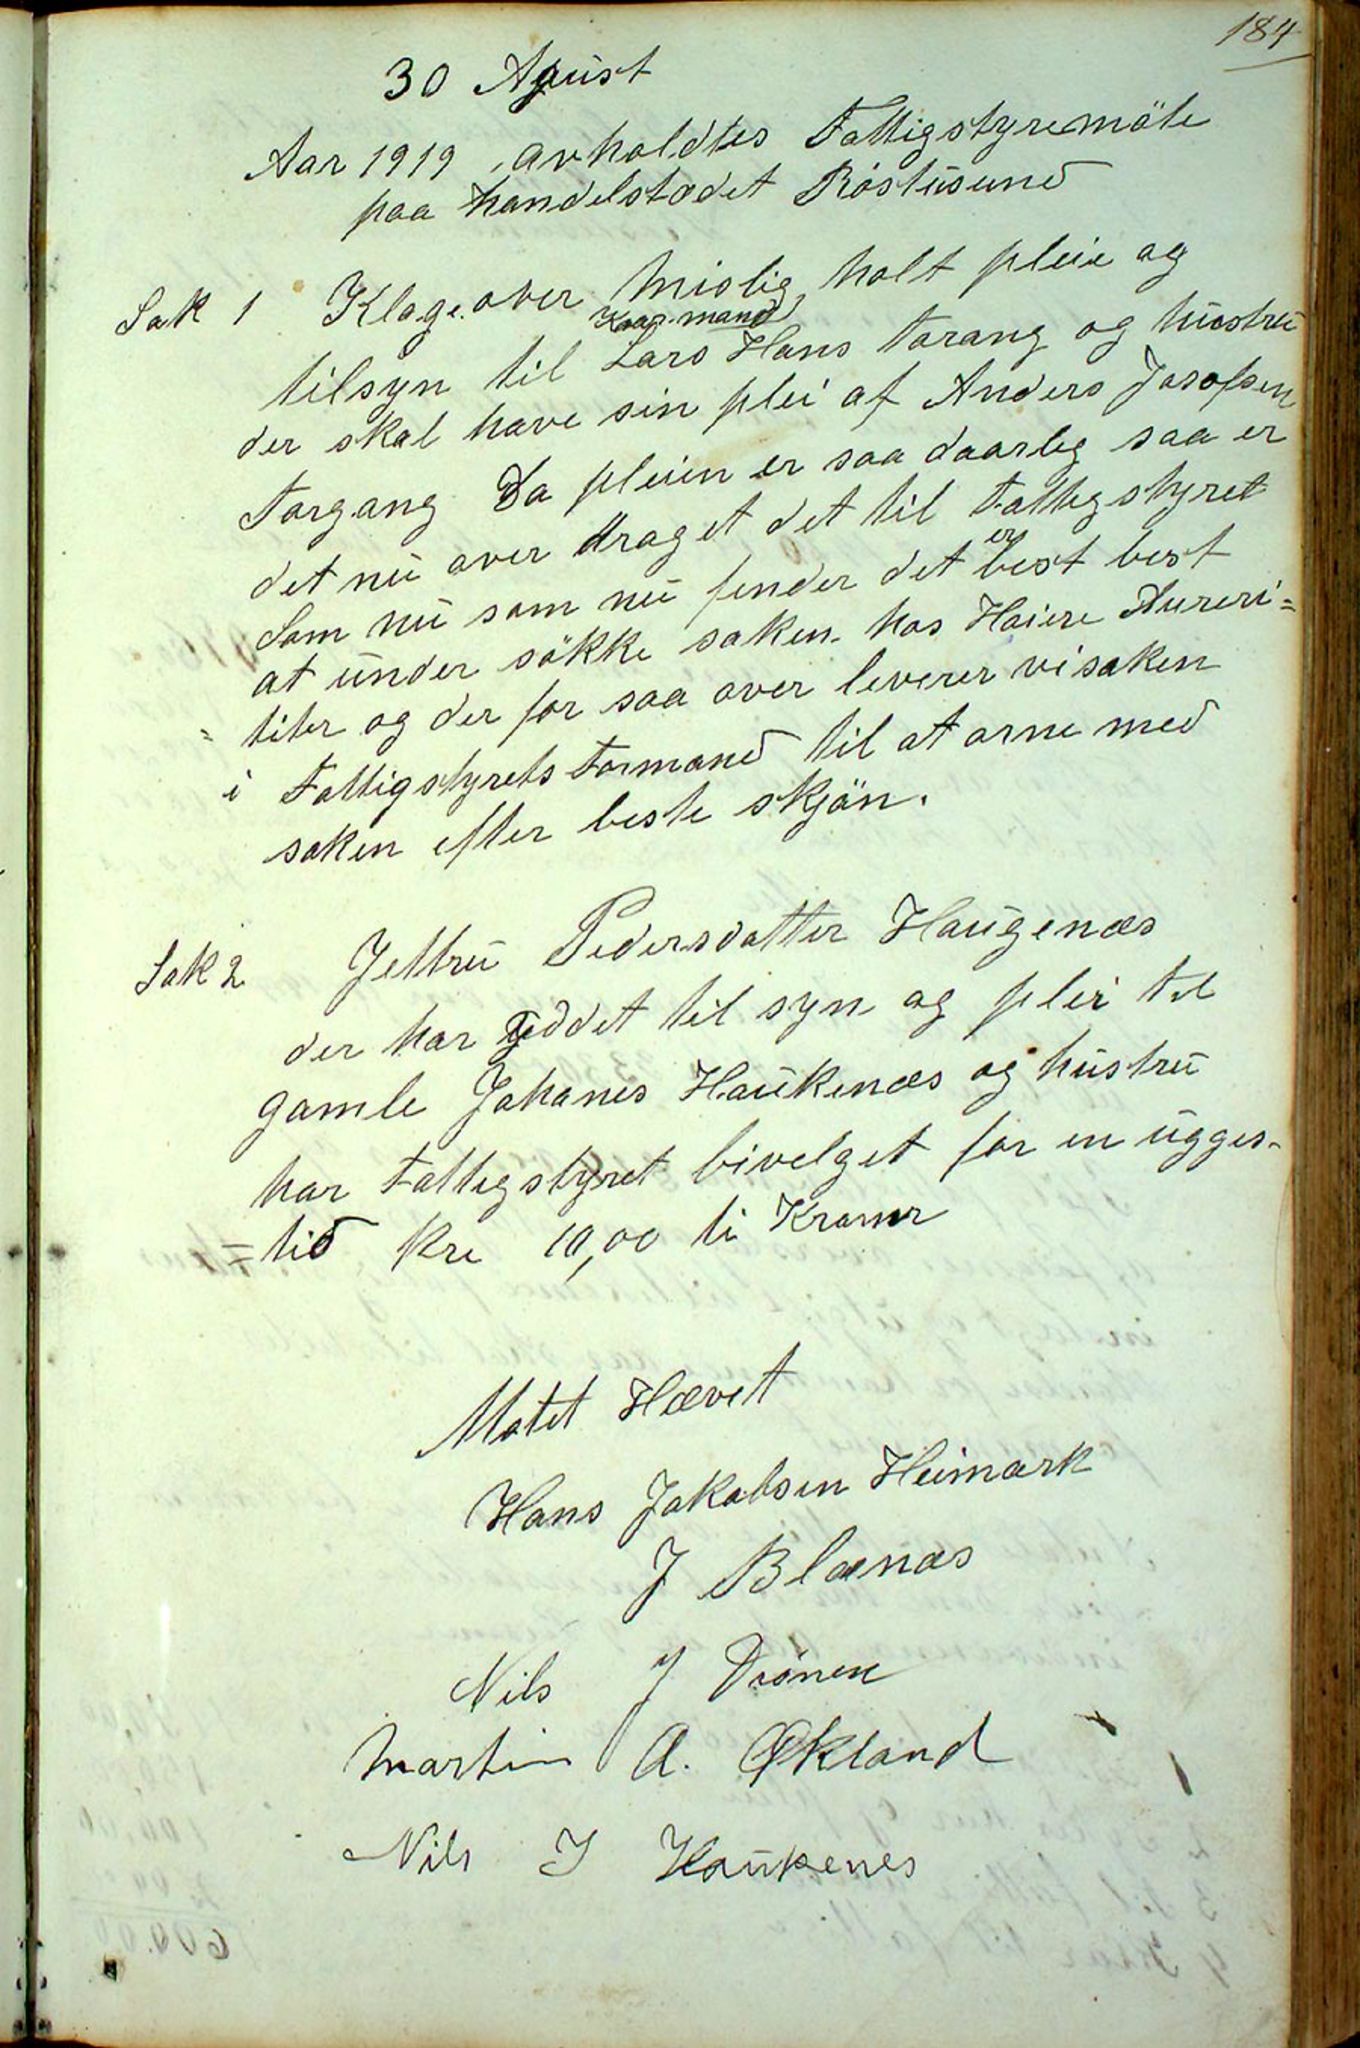 184
30 Agust
Aar 1919, avholdtes Fattigstyremöte
paa handelstædet Röstusund
Sak 1 Klage over mislig holt pleie og
Kaar-mand
tilsyn til Lars Hans Torang og hustru
der skal have sin plei af Anders Josefsen
Torgang Da pleien er saa daarlig saa er
det nu over draget det til Fattigstyret
er
Som nu som nu finder det best best
at under sökke saken hos Høiere Aureri=
=titer og der for saa over leverer vi saken
i Fattigstyrets Formand til at orne med
saken efter beste skjön.
Sak 2 Jeltru Pedersdatter Haugenæs
der har yddet til syn og plei til
gamle Johanes Haukenæs og hustru
har Fattigstyret bivelget for en ugges-
=tid Kre 10,00 ti Kroner
Motet Hævet
Hans Jakobsen Heimark
J Blænæs
Nils J Drönen
Martin A. Økland
Nils J Haukenes